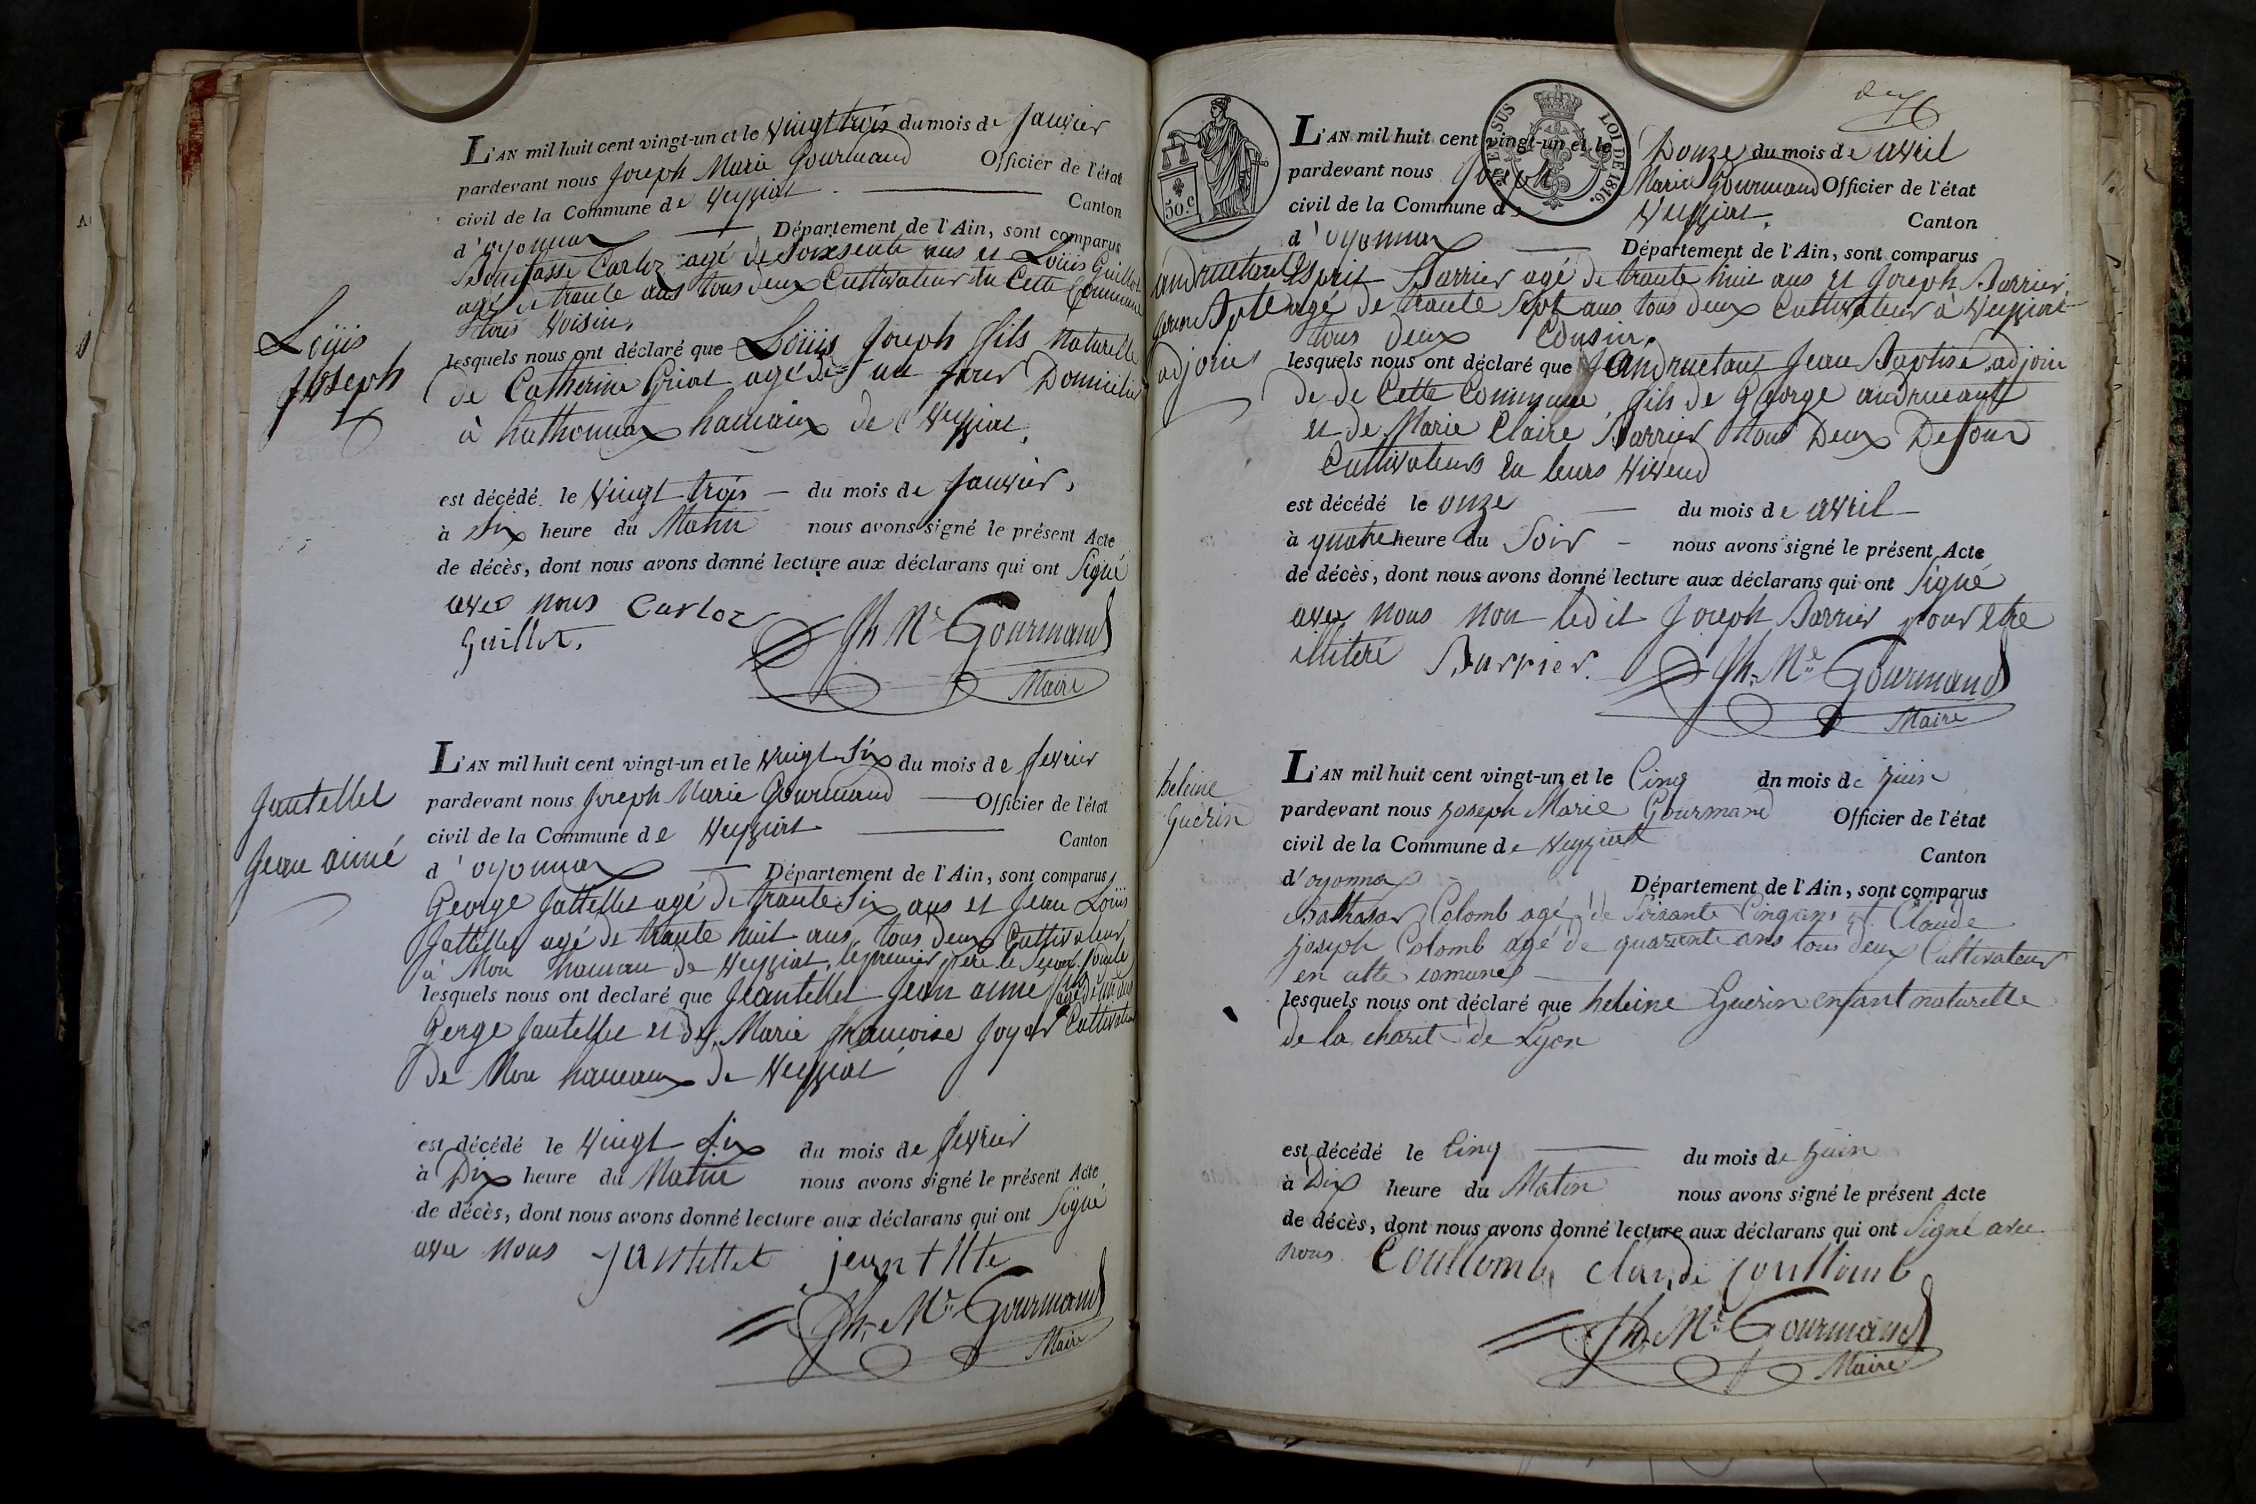 L'AN mil huit cent vingt-un et le Vingt trois du mois de Janvier
pardevant nous Joseph Marie Gourmand Officier de l'état
civil de la Commune de Veyziat Canton
d'oyonnax Département de l'Ain, sont comparus
Bonifasse Carloz agé de Soixsente ans et Loüis Guillot
agé de trante ans tous deux Cultivateur en Cette Commune
tous Voisin,
Loüis
Joseph
lesquels nous ont déclaré que Loüis Joseph fils Naturelle
de Catherine Griot agé de un jour Domicilié
à hathonnax hamaux de Veyziat,
est décédé le Vingt trois du mois de Janvier,
à Six heure du Matin nous avons signé le présent Acte
de décès, dont nous avons donné lecture aux déclarans qui ont Signé
avec nous Carloz
Guillot, Jh Me Gourmand
Maire
Jantellet
Jean aimé
L'AN mil huit cent vingt-un et le Vingt Six du mois de fevrier
pardevant nous Joseph Marie Gourmand Officier de l'état
civil de la Commune de Veyziat Canton
d'oyonnax Département de l'Ain, sont comparus
George Jattellet agé de trante Six ans et Jean Loüis
Jattellet agé de trante huit ans, tous deux Cultivateur
à Mon hamau de Veyziat, le premier pere le Segon
lesquels nous ont declaré que Jeantellet Jean aimé agé de un ans fils
Gerge Jantellet et de Marie francoise Joyar Cultivateur
De Mon hamaux de Veyziat
est décédé le Vingt Six du mois de fevrier
à Dix heure du Matin nous avons signé le présent Acte
de décès, dont nous avons donné lecture aux déclarans qui ont Signé
avec nous Jantellet jeantllte
Jh. Me Gourmand
Maire
50.c
EN SUS
LOI DE 1816.
L'AN mil huit cent vingt-un et le Douze du mois de avril
pardevant nous Joseph Marie Gourmand Officier de l'état
civil de la Commune de Veyziat, Canton
d'oyonnax Département de l'Ain, sont comparus
andruetant
Jean Bpte
adjoin
Esprit Barrier agé de trante huit ans et Joseph Barrier,
agé de trante Sept ans tous deux Cultivateur à Veyziat
tous deux Cousin,
lesquels nous ont déclaré que andruetant Jean Baptise adjoin
de de Cette Commune, fils de George andrueant
et de Marie Claire Barrier tous Deux Defour
Cultivateurs en leurs Vivend
est décédé le onze du mois de avril
à quatre heure du Soir nous avons signé le présent Acte
de décès, dont nous avons donné lecture aux déclarans qui ont Signé
avec nous non ledit Joseph Barrier pour etre
illiteré Barrier. Jh. Me Gourmand
Maire
heleine
Guerin
L'AN mil huit cent vingt-un et le Cinq du mois de Juin
pardevant nous Joseph Marie Gourmand Officier de l'état
civil de la Commune de Veyziat Canton
d'oyonnax Département de l'Ain, sont comparus
Balthasar Colomb agé de Soixante Cinq ans et Claude
Joseph Colomb agé de quarante ans tous deux Cultivateur
en cette comune
lesquels nous ont déclaré que heleine Guerin enfant naturelle
de la charit de Lyon
est décédé le Cinq du mois de Juin
à Dix heure du Matin nous avons signé le présent Acte
de décès, dont nous avons donné lecture aux déclarans qui ont Signé avec
nous Coullomb, claude coullomb
Jh. Me Gourmand
Maire